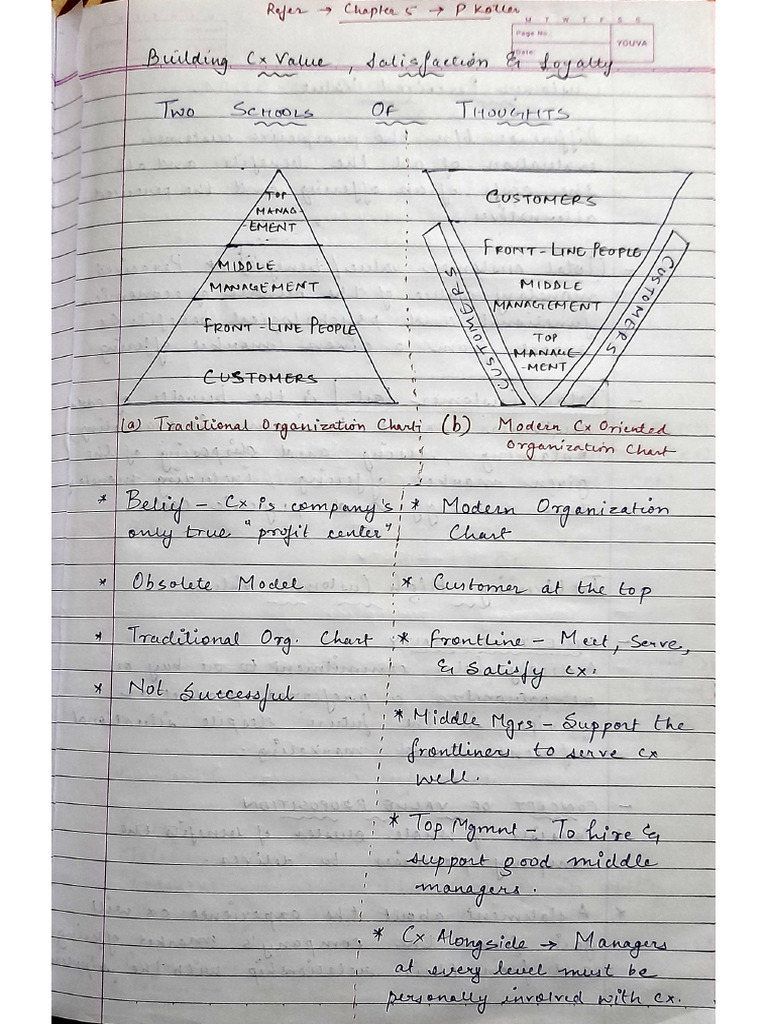 Refer → Chapter 5 → P Kotler
M T W T F S S
Page No.:
Date:
YOUVA
Building Cx Value, Satisfaction & Loyalty
TWO SCHOOLS OF THOUGHTS
TOP
MANAG-
-EMENT
MIDDLE
MANAGEMENT
FRONT-LINE PEOPLE
CUSTOMERS
(a) Traditional Organization Chart
CUSTOMERS
FRONT-LINE PEOPLE
MIDDLE
MANAGEMENT
TOP
MANAGE-
-MENT
CUSTOMERS
CUSTOMERS
(b) Modern Cx Oriented
Organization Chart
* Belief - Cx is company's
only true "profit center"
* Obsolete Model
* Traditional Org. Chart
* Not Successful
* Modern Organization
Chart
* Customer at the top
* Frontline - Meet, Serve,
& Satisfy cx.
* Middle Mgrs - Support the
frontliners to serve cx
well.
* Top Mgmnt - To hire &
support good middle
managers.
* Cx Alongside → Managers
at every level must be
personally involved with cx.